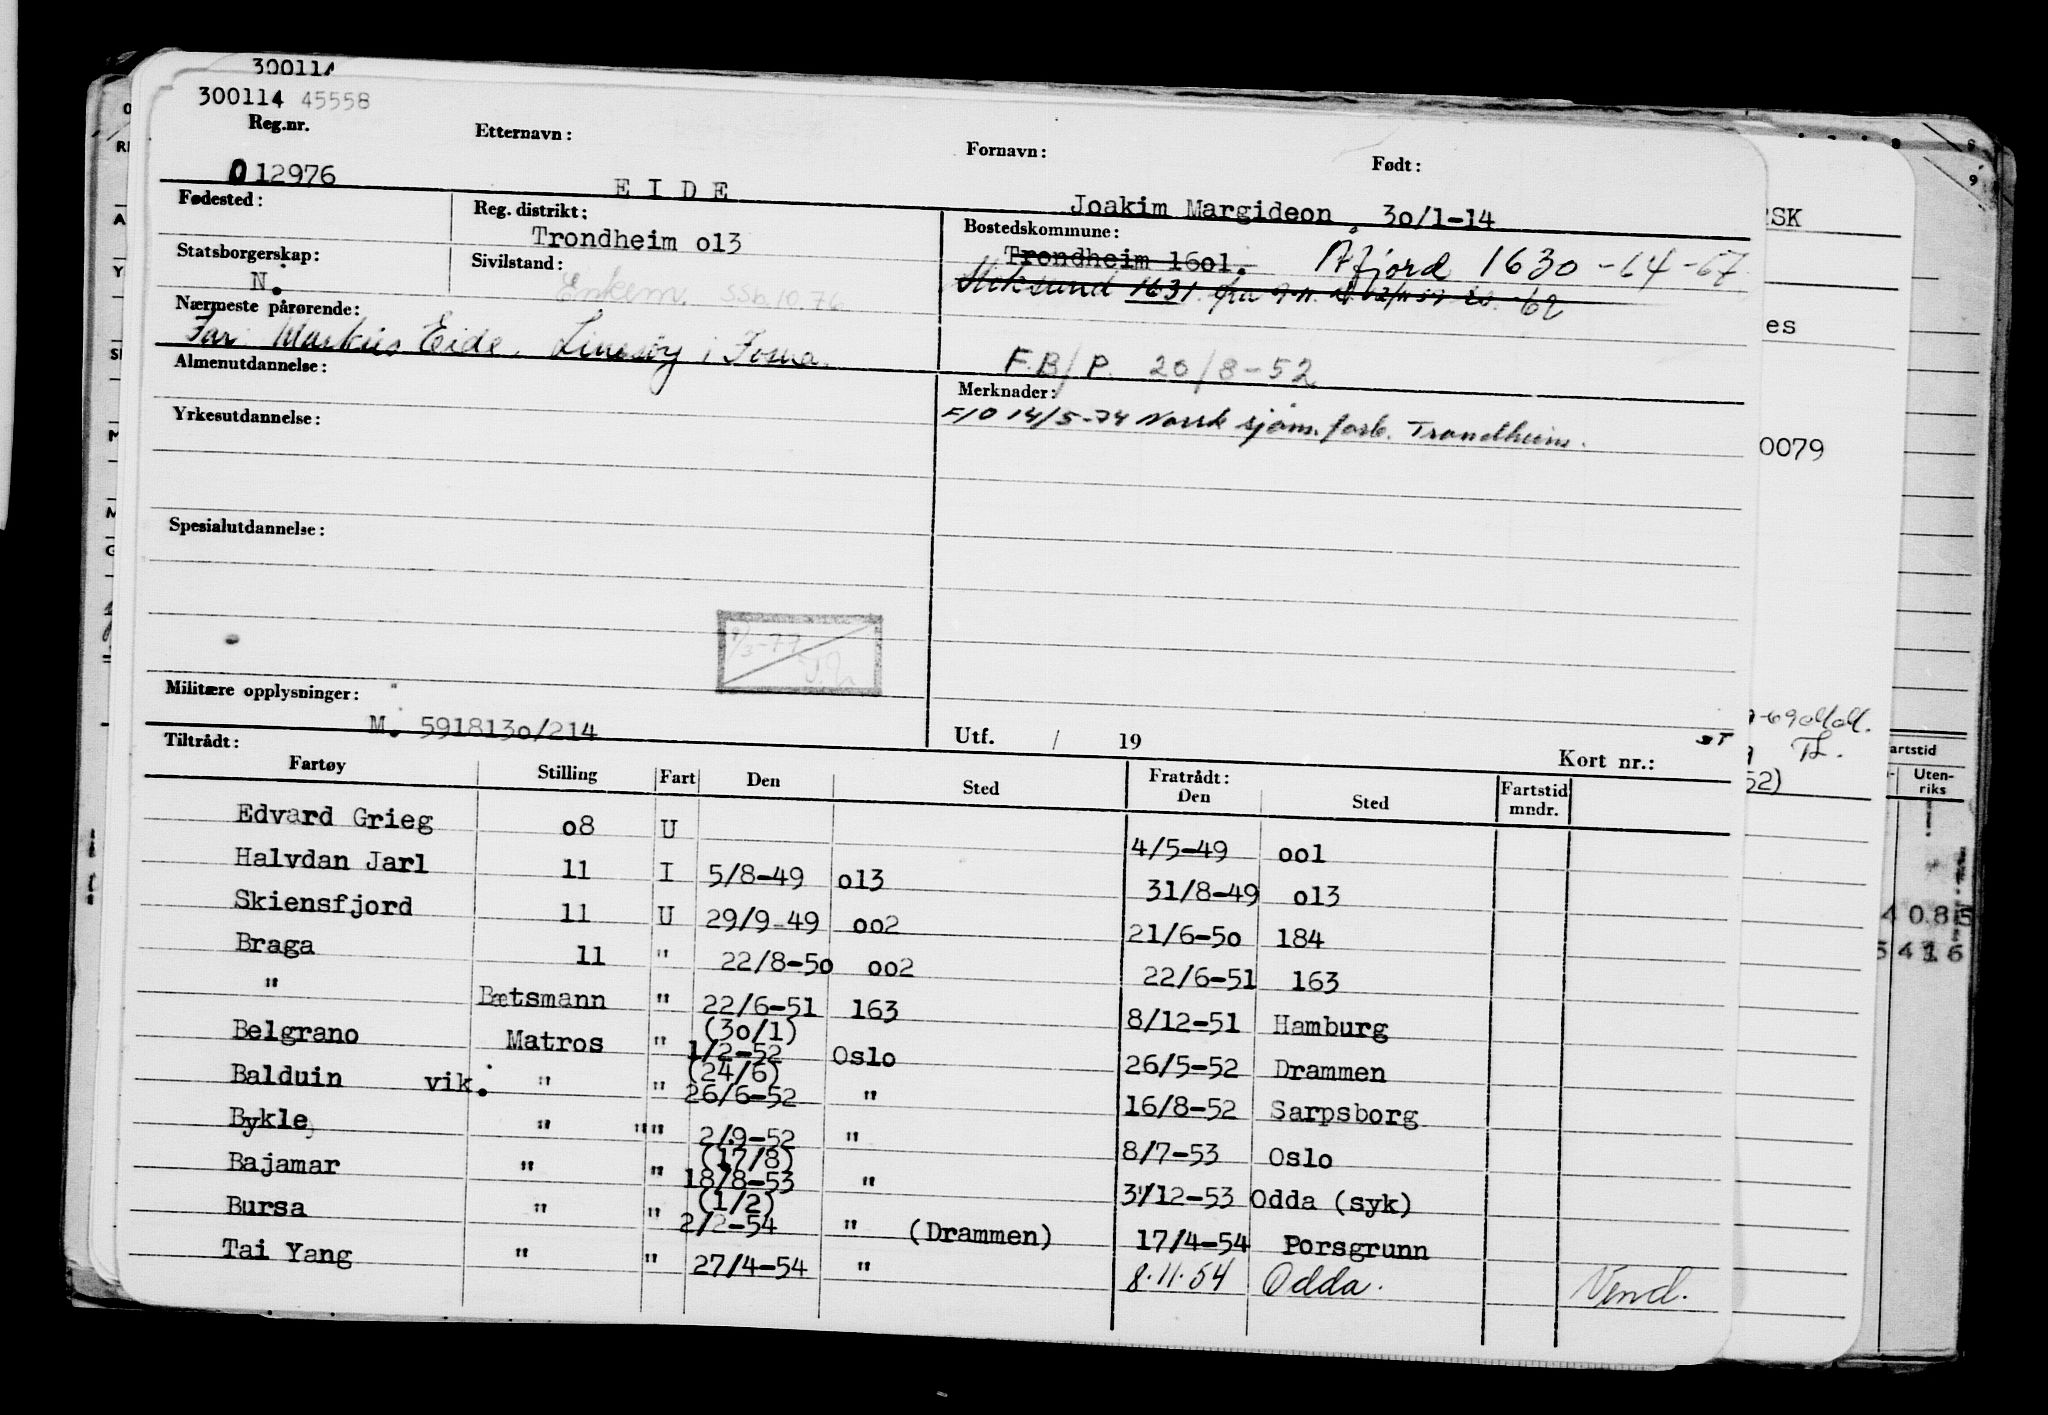 300114
300114 45558
Reg.nr. Etternavn: Fornavn: Født:
012976 EIDE Joakim Margideon 3o/1-14
Fødested: Reg. distrikt: Bostedskommune:
Trondheim o13 Trondheim 16o1. Åfjord 1630-64-67
Statsborgerskap: Sivilstand:
N. Enkem. SSb.10.76 Stoksund 1631 fra 9-11. -62
Nærmeste pårørende:
Far: Markus Eide, Linesøy i Fosna. F.B/P. 20/8-52
Almenutdannelse: Merknader:
F/O 14/5-74 Norsk sjøm. forb. Trondheim.
Yrkesutdannelse:
Spesialutdannelse:
9/3-77
Militære opplysninger:
M. 591813o/214 Utf. / 19 sT
Tiltrådt: Kort nr.:
Fartøy Stilling Fart Den Sted Fratrådt: Den Sted Fartstid mndr.
Edvard Grieg o8 U 4/5-49 oo1
Halvdan Jarl 11 I 5/8-49 o13 31/8-49 o13
Skiensfjord 11 U 29/9-49 oo2 21/6-5o 184
Braga 11 " 22/8-5o oo2 22/6-51 163
" Bætsmann " 22/6-51 163 8/12-51 Hamburg
Belgrano Matros " (3o/1) 1/2-52 Oslo 26/5-52 Drammen
Balduin vik. " " (24/6) 26/6-52 " 16/8-52 Sarpsborg
Bykle " "" 2/9-52 " 8/7-53 Oslo
Bajamar " " (17/8) 18/8-53 " 3/12-53 Odda (syk)
Bursa " " (1/2) 2/2-54 " (Drammen) 17/4-54 Porsgrunn
Tai Yang " " 27/4-54 " 8.11.54 Odda. Vend.
RSK
es
0079
52)
artstid
Uten-
riks